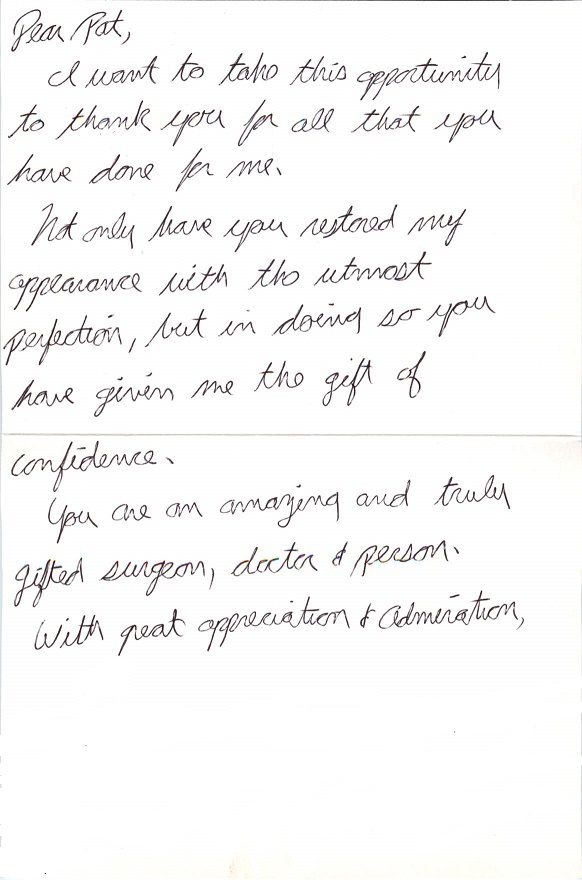 Dear Pat,
I want to take this opportunity
to thank you for all that you
have done for me.
Not only have you restored my
appearance with the utmost
perfection, but in doing so you
have given me the gift of
confidence.
You are an amazing and truly
gifted surgeon, doctor & person.
With great appreciation & admiration,